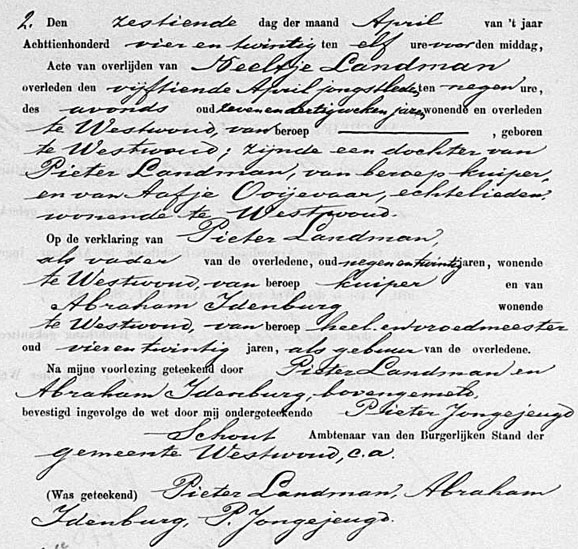 2. Den zestiende dag der maand April van 't jaar
Achttienhonderd vier en twintig ten elf ure voor den middag,
Acte van overlijden van Neeltje Landman
overleden den vijftiende April jongstleden ten negen ure,
des avonds oud zeven en dertig weken jaren wonende en overleden
te Westwoud, van beroep ———, geboren
te Westwoud; zijnde een dochter van
Pieter Landman, van beroep kuiper,
en van Aafje Ooijevaar, echtelieden
wonende te Westwoud.
Op de verklaring van Pieter Landman,
als vader van de overledene, oud negen en twintig jaren, wonende
te Westwoud, van beroep kuiper en van
Abraham Idenburg wonende
te Westwoud, van beroep heel- en vroedmeester
oud vier en twintig jaren, als gebuur van de overledene.
Na mijne voorlezing geteekend door Pieter Landman en
Abraham Idenburg, bovengemeld,
bevestigd ingevolge de wet door mij ondergeteekende Pieter Jongejeugd
Schout Ambtenaar van den Burgerlijken Stand der
gemeente Westwoud, c.a.
(Was geteekend) Pieter Landman, Abraham
Idenburg, P. Jongejeugd.